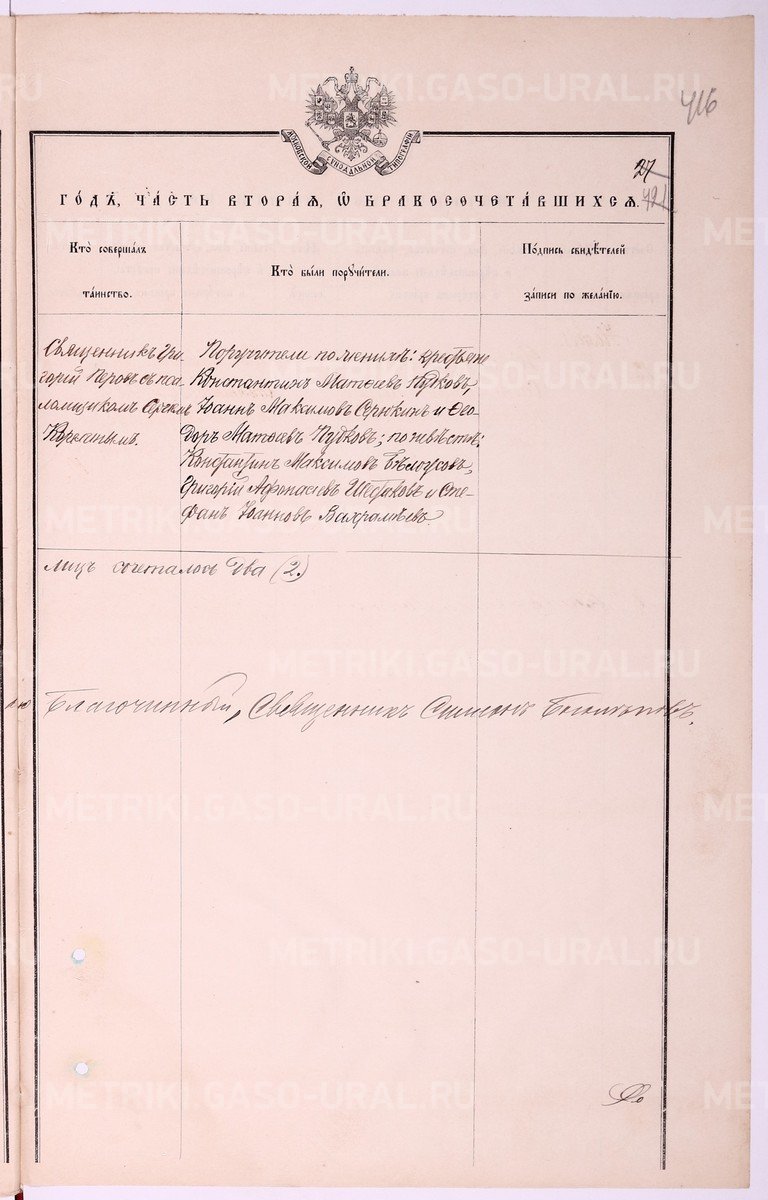 416
МОСКОВСКОЙ СИНОДАЛЬНОЙ ТИПОГРАФІИ
27
421
ГО́ДЪ, ЧА́СТЬ ВТОРА́Я, Ѡ БРАКОСОЧЕТА́ВШИХСЯ.
Кто̀ соверша́лъ
та́инство.
Кто̀ бы́ли порꙋчи́тели.
По́дпись свидѣ́телей
за́писи по жела́нію.
Священникъ Гри-
горій Перовъ съ пса-
ломщикомъ
Корелинымъ.
Поручители по женихѣ: крестьяне
Константинъ Матѳеевъ Пудковъ,
Іоаннъ Максимовъ и Ѳео-
доръ Матѳеевъ Пудковъ; по невѣстѣ:
Константинъ Максимовъ Бѣлоусовъ,
Григорій Афонасьевъ и Сте-
фанъ Іоанновъ Вахрамѣевъ.
лицъ сочеталось два (2.)
Благочинный, Священникъ Симеонъ
METRIKI.GASO-URAL.RU